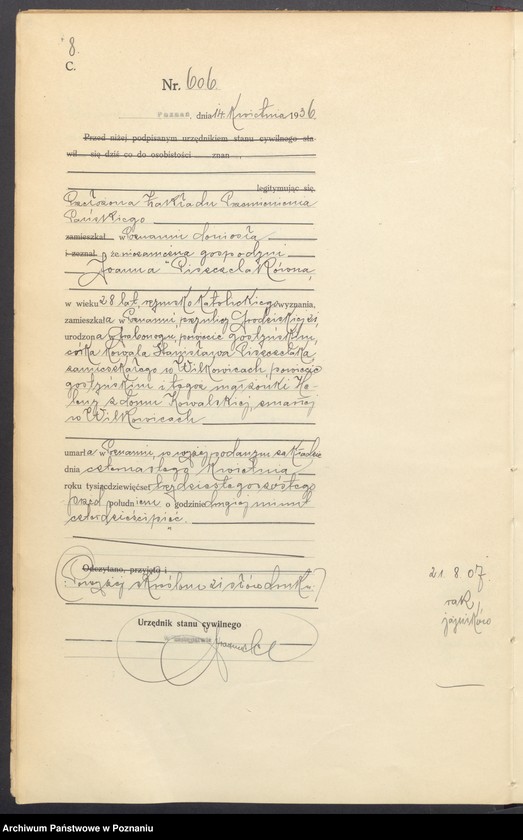 8.
C.
Nr. 606.
Poznań, dnia 14 Kwietnia 1936.
Przed niżej podpisanym urzędnikiem stanu cywilnego sta
wił się dziś co do osobistości znan
legitymując się
Przełożona Zakładu Przemienienia
Pańskiego
zamieszkał w Poznaniu doniosła
i zeznał, że niezamężna gospodyni
Joanna
w wieku 28 lat, rzymsko Katolickiego wyznania,
zamieszkała w Poznaniu, przy ulicy Grodziskiej
urodzona w powiecie gostyńskim,
córka kowala Stanisława
zamieszkałego w Wilkowicach, powiecie
gostyńskim i tegoż małżonki He-
leny z domu Kowalskiej, zmarłej
w Wilkowicach
umarła w Poznaniu, w wyżej podanym zakładzie
dnia czternastego Kwietnia
roku tysiącdziewięćset trzydziestego szóstego
przed południem o godzinie drugiej minut
czterdzieści pięć.
Odczytano, przyjęto i
Powyżej skreślono słów druku.
Urzędnik stanu cywilnego
w zastępstwie
21. 8. 07.
rak
jajników
Archiwum Państwowe w Poznaniu